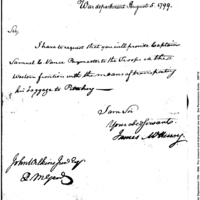 War department August 5. 1799.
Sir,
I have to request that you will provide Captain
Samuel C Vance Paymaster to the Troops on the
Western frontier with the means of transporting
his baggage to Pittsburg
I am Sir
Your obt Servant
James McHenry
John Wilkins Junr Esqr
Q M General